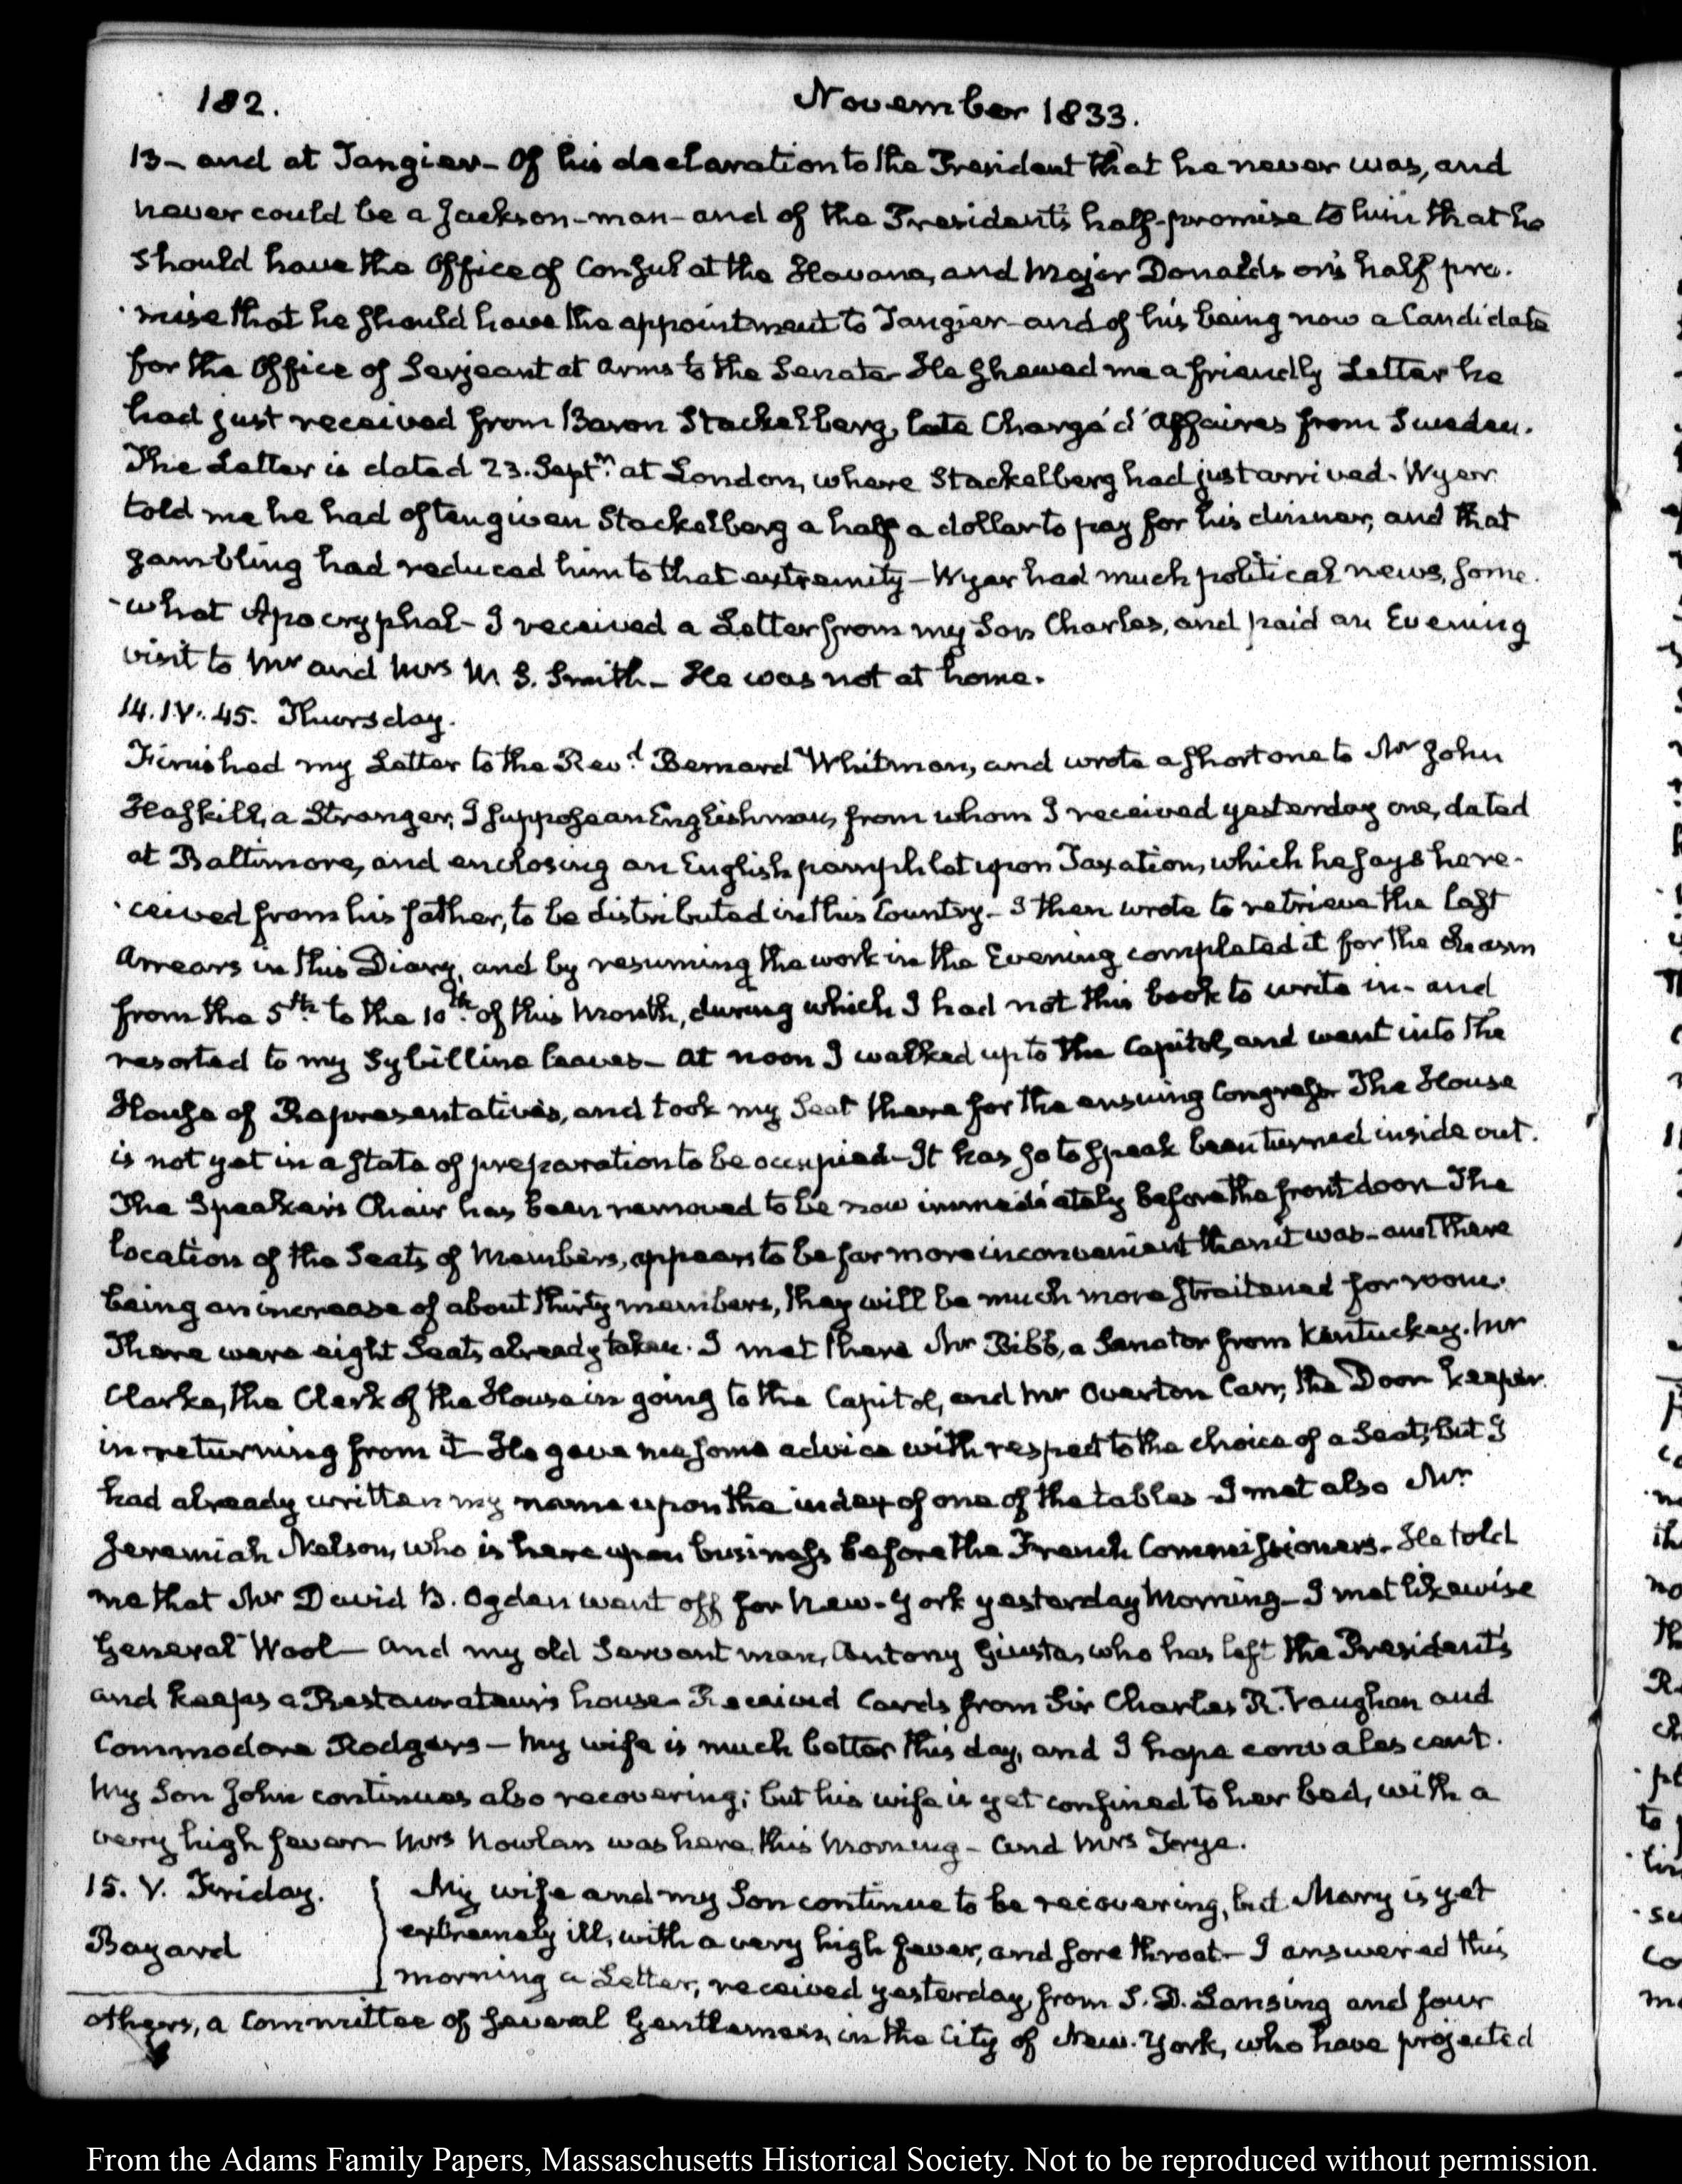 182. November 1833.
13 – and at Tangier – Of his declaration to the President that he never was, and
never could be a Jackson-man – and of the President's half-promise to him that he
should have the Office of Consul at the Havana, and Major Donaldson's half pro-
-mise that he should have the appointment to Tangier – and of his being now a Candidate
for the Office of Serjeant at Arms to the Senate – He shewed me a friendly Letter he
had just received from Baron Stackelberg, late Chargé d'Affaires from Sweden.
The Letter is dated 23. Septr. at London, where Stackelberg had just arrived. Wyer
told me he had often given Stackelberg a half a dollar to pay for his dinner, and that
gambling had reduced him to that extremity – Wyer had much political news, some-
-what Apocryphal – I received a Letter from my Son Charles, and paid an Evening
visit to Mr and Mrs W. S. Smith – He was not at home.
14. IV. 45. Thursday.
Finished my Letter to the Revd. Bernard Whitman, and wrote a short one to Mr John
Haskill, a Stranger, I suppose an Englishman, from whom I received yesterday one, dated
at Baltimore, and enclosing an English pamphlet upon Taxation, which he says he re-
-ceived from his father, to be distributed in this Country – I then wrote to retrieve the last
Arrears in this Diary, and by resuming the work in the Evening completed it for the chasm
from the 5th. to the 10th. of this Month, during which I had not this book to write in – and
resorted to my Sybilline leaves – At noon I walked up to the Capitol, and went into the
House of Representatives, and took my Seat there for the ensuing Congress – The House
is not yet in a state of preparation to be occupied – It has so to speak been turned inside out.
The Speaker's Chair has been removed to be now immediately before the front door – The
location of the Seats of Members, appears to be far more inconvenient than it was – and there
being an increase of about thirty members, they will be much more straitened for room.
There were eight Seats already taken. I met there Mr Bibb, a Senator from Kentuckey. Mr
Clarke, the Clerk of the House in going to the Capitol, and Mr Overton Carr, the Door keeper
in returning from it – He gave me some advice with respect to the choice of a Seat; but I
had already written my name upon the index of one of the tables – I met also Mr
Jeremiah Nelson, who is here upon business before the French Commissioners – He told
me that Mr David B. Ogden went off for New-York yesterday Morning – I met likewise
General Wool – and my old Servant man, Antony Giusta, who has left the President's
and keeps a Restaurateur's house – Received Cards from Sir Charles R. Vaughan and
Commodore Rodgers – My wife is much better this day, and I hope convalescent.
My Son John continues also recovering; but his wife is yet confined to her bed, with a
very high fever – Mrs Nowlan was here this Morning – and Mrs Frye.
15. V. Friday. My wife and my Son continue to be recovering, but Mary is yet
extremely ill, with a very high fever, and sore throat – I answered this
Bayard
morning a Letter, received yesterday, from S. D. Lansing and four
others, a Committee of several Gentlemen, in the City of New-York, who have projected
From the Adams Family Papers, Massachusetts Historical Society. Not to be reproduced without permission.